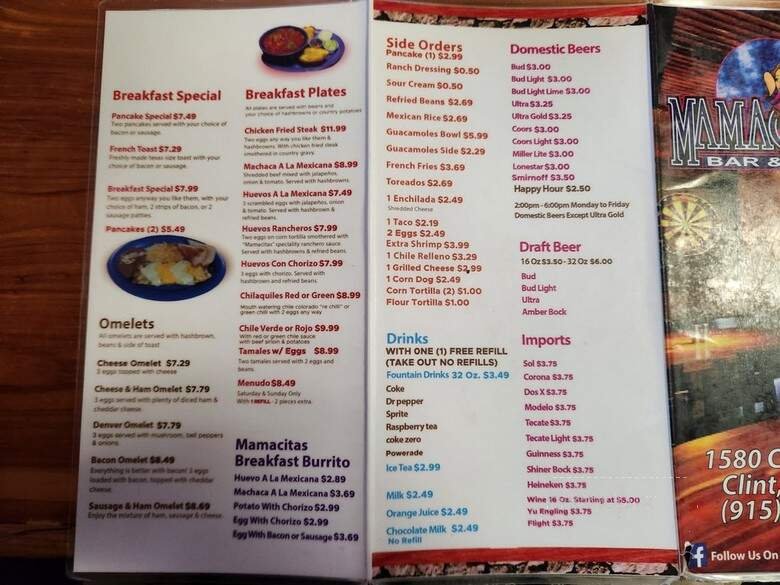 Breakfast Special
Pancake Special $7.49
Two pancakes served with your choice of
bacon or sausage.
French Toast $7.29
Freshly made texas size toast with your
choice of bacon or sausage.
Breakfast Special $7.99
Two eggs anyway you like them, with your
choice of ham, 2 strips of bacon, or 2
sausage patties.
Pancakes (2) $5.49
Omelets
All omelets are served with hashbrown,
beans & side of toast
Cheese Omelet $7.29
3 eggs topped with cheese
Cheese & Ham Omelet $7.79
3 eggs served with plenty of diced ham &
cheddar cheese.
Denver Omelet $7.79
3 eggs served with mushroom, bell peppers
& onions.
Bacon Omelet $8.49
Everything is better with bacon! 3 eggs
loaded with bacon, topped with cheddar
cheese.
Sausage & Ham Omelet $8.69
Enjoy the mixture of ham, sausage & cheese
Breakfast Plates
All plates are served with beans and
your choice of hashbrowns or country potatoes
Chicken Fried Steak $11.99
Two eggs any way you like them &
hashbrowns. With chicken fried steak
smothered in country gravy.
Machaca A La Mexicana $8.99
Shredded beef mixed with jalapeños,
onion & tomato. Served with hashbrowns.
Huevos A La Mexicana $7.49
3 scrambled eggs with jalapeños, onion
& tomato. Served with hashbrown &
refried beans.
Huevos Rancheros $7.99
Two eggs on corn tortilla smothered with
"Mamacitas" speciality ranchero sauce
Served with hashbrowns & refried beans.
Huevos Con Chorizo $7.99
3 eggs with chorizo. Served with
hashbrown and refried beans.
Chilaquiles Red or Green $8.99
Mouth watering chile colorado "re chili" or
green chili with 2 eggs any way
Chile Verde or Rojo $9.99
With red or green chile sauce
with beef sirlion & potatoes
Tamales w/ Eggs $8.99
Two tamales served with 2 eggs and
beans.
Menudo $8.49
Saturday & Sunday Only
With 1 REFILL - 2 pieces extra.
Mamacitas
Breakfast Burrito
Huevo A La Mexicana $2.89
Machaca A La Mexicana $3.69
Potato With Chorizo $2.99
Egg With Chorizo $2.99
Egg With Bacon or Sausage $3.69
Side Orders
Pancake (1) $2.99
Ranch Dressing $0.50
Sour Cream $0.50
Refried Beans $2.69
Mexican Rice $2.69
Guacamoles Bowl $5.99
Guacamoles Side $2.29
French Fries $3.69
Toreados $2.69
1 Enchilada $2.49
Shredded Cheese
1 Taco $2.19
2 Eggs $2.49
Extra Shrimp $3.99
1 Chile Relleno $3.29
1 Grilled Cheese $2.99
1 Corn Dog $2.49
Corn Tortilla (2) $1.00
Flour Tortilla $1.00
Drinks
WITH ONE (1) FREE REFILL
(TAKE OUT NO REFILLS)
Fountain Drinks 32 Oz. $3.49
Coke
Dr pepper
Sprite
Raspberry tea
coke zero
Powerade
Ice Tea $2.99
Milk $2.49
Orange Juice $2.49
Chocolate Milk $2.49
No Refill
Domestic Beers
Bud $3.00
Bud Light $3.00
Bud Light Lime $3.00
Ultra $3.25
Ultra Gold $3.25
Coors $3.00
Coors Light $3.00
Miller Lite $3.00
Lonestar $3.00
Smirnoff $3.50
Happy Hour $2.50
2:00pm - 6:00pm Monday to Friday
Domestic Beers Except Ultra Gold
Draft Beer
16 Oz $3.50 - 32 Oz $6.00
Bud
Bud Light
Ultra
Amber Bock
Imports
Sol $3.75
Corona $3.75
Dos X $3.75
Modelo $3.75
Tecate $3.75
Tecate Light $3.75
Guinness $3.75
Shiner Bock $3.75
Heineken $3.75
Wine 16 Oz. Starting at $5.00
Yu Engling $3.75
Flight $3.75
MAMAC
BAR &
1580
Clint,
(915)
f Follow Us On